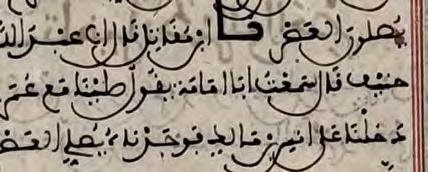 يصلون العصر نا ابن مقاتل قال انا عبد
حنيف قال سمعت ابا امامة يقول صلينا مع عمر
دخلنا على انس بن مالك فوجدناه يصلي العصر